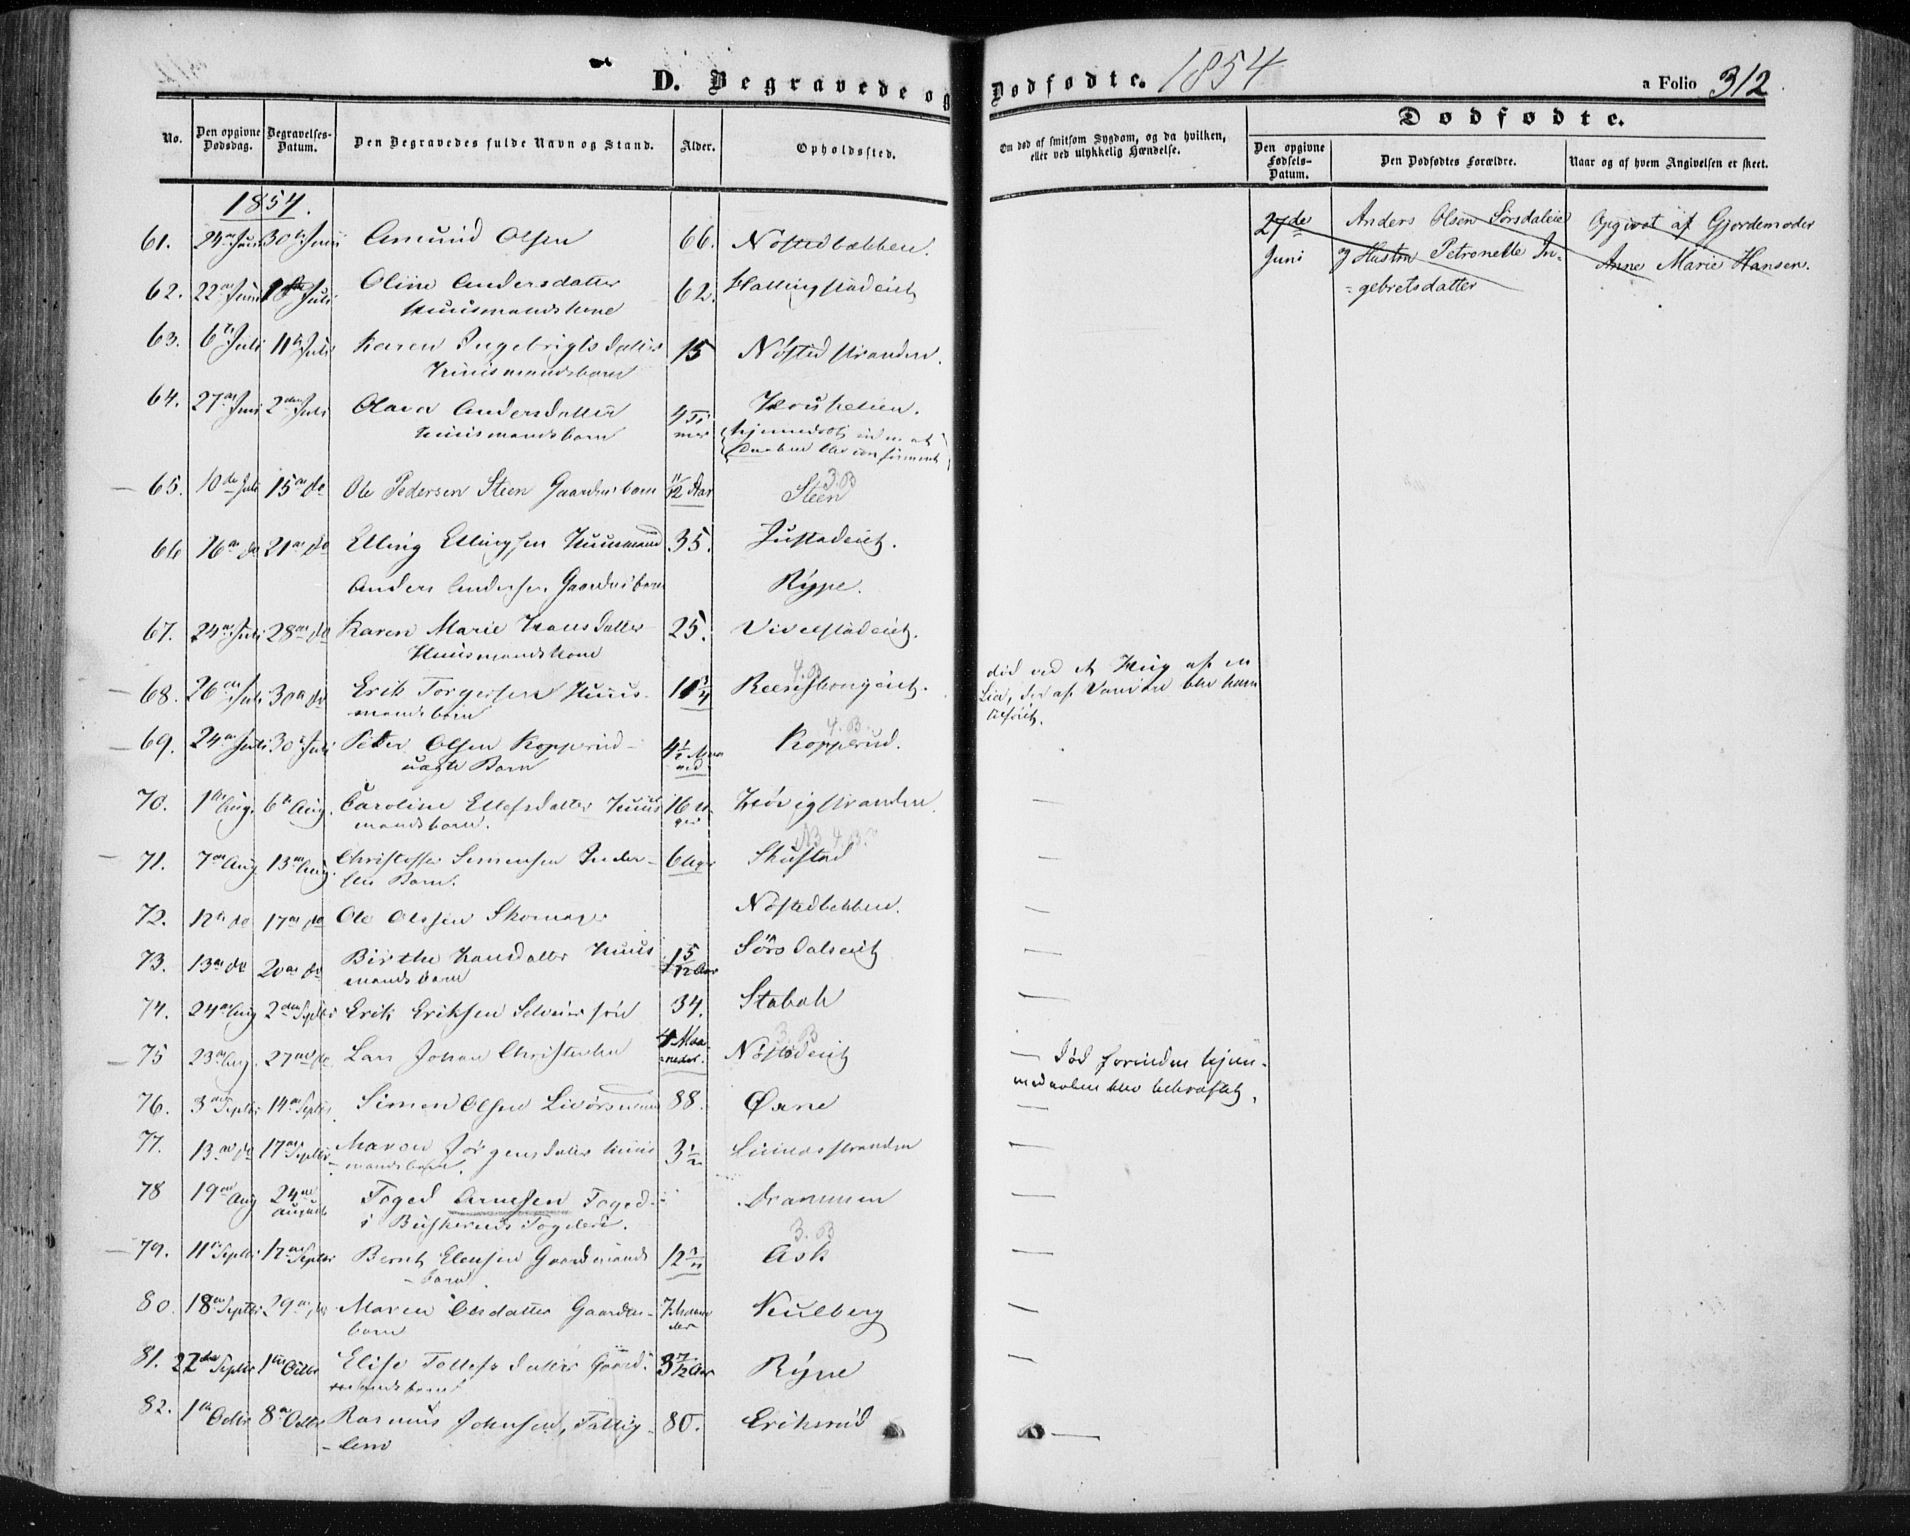 D. Begravede og Dødfødte. 1854
a Folio 312.
Dødfødte.
No.
Den opgivne Dødsdag.
Begravelses-Datum.
Den Begravedes fulde Navn og Stand.
Alder.
Opholdssted.
Om død af smitsom Sygdom, og da hvilken, eller ved ulykkelig Hændelse.
Den opgivne Fødsels-Datum.
Den Dødfødtes Forældre.
Naar og af hvem Angivelsen er skeet.
1854.
61. 24de Juni 30te Juni Amund Olsen 66. Nøstedbakken.
27de Anders Olsen Sørsdaleie Opgivet af Gjordemoder
Juni og Hustru Petronelle In-
gebretsdatter
Anne Marie Hansen.
62. 22de Juni Juli Oline Andersdatter 62. Hallingstadeiet
Huusmandskone
63. 6te Juli 11te Juli Karen Ingebrigtsdatter 15 Nøstedstranden.
Huusmandsbarn
64. 27de Juni 2den Juli Olava Andersdatter 4 Ti-
mer
Huusmandsbarn
65. 10de Juli 15de do Ole Pedersen Steen Gaardmsbarn 11/12 Aar Steen
3.B
66 16de do 21de do Elling Ellingsen Huusmand 35. Justadeiet.
Anders Andersen Gaardmsbarn Rype.
67. 24de Juli 28de do Karen Marie Hansdatter 25. Vivelstadeiet.
Huusmandskone
68. 26de Juli 30de do Erik Torgersen Huus-
mandsbarn
4.B
død ved et Hug af en
Lia, der af Vanvare blev ham
tilføiet.
69. 24de Juli 30te Juli Peder Olsen Kopperud 4 1/2 Maa
ned
4.B. Kopperud.
uægte Barn
70. 1ste Aug. 6te Aug. Caroline Ellefsdatter Huus 16 U-
ger
Høvigstranden.
mandsbarn.
71. 7de Aug 13de Aug. Christoffer Simensen 6 Uger Skustad
Barn.
72. 12te do 17de do Ole Olessen Skomager Nøstedbakken.
73. 13de do 20de do Birthe Hansdatter Huus 1 5/12 Aar Sørsdalseiet
mandsbarn
74. 24de Aug 2den Septbr Erik Eriksen Selveiersøn 34. Stabæk
75 23de Aug. 27de do. Lars Johan Christensen 4 Maa-
neder.
3.B Nøstedeiet
Død forinden hjem-
medaaben blev bekræftet.
76. 3die Septbr 14de Septbr. Simen Olsen Livørsmand 88. Øxne
77. 13de do 17de Septbr Maren Jørgensdatter Huus 3 1/2
mandsbarn.
78 19de Aug 24de
August
Foged Arnesen Foged Drammen
i Buskeruds Fogderi.
79. 11te Septbr 17de Septbr Bernt Elensen Gaardmands 3.B Ask
Barn
80. 18de Septbr 29de do Maren Olsdatter Gaardm- 7 Maane
der
Kulberg
barn
81. 22de Septbr 1ste Octbr Elise Tollefsdatter Gaard- 3 7/12 Aar Rype
mandsbarn
82. 1ste Octbr 8de Octbr Rasmus Johnsen, Fattig- 80. Eriksrud
lem